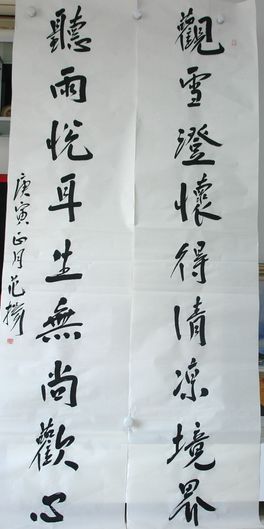 觀雪澄懷得清凉境界
聽雨悦耳生無尚歡心
庚寅正月范揚